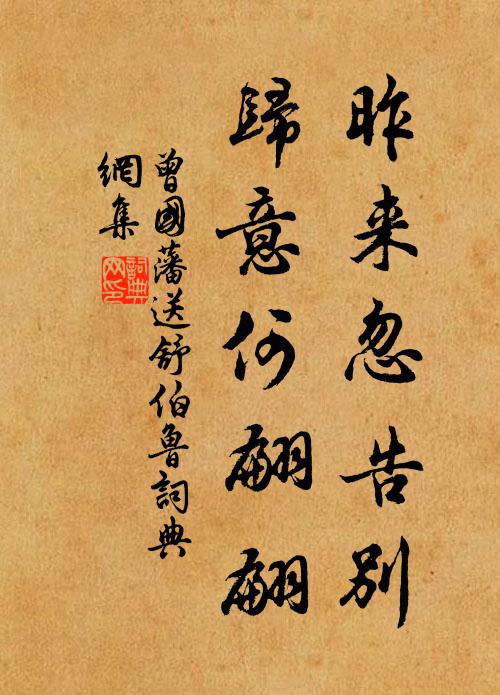 昨来忽告别
歸意何翩翩
曾國藩送舒伯魯詞典
網集
詞典
网印